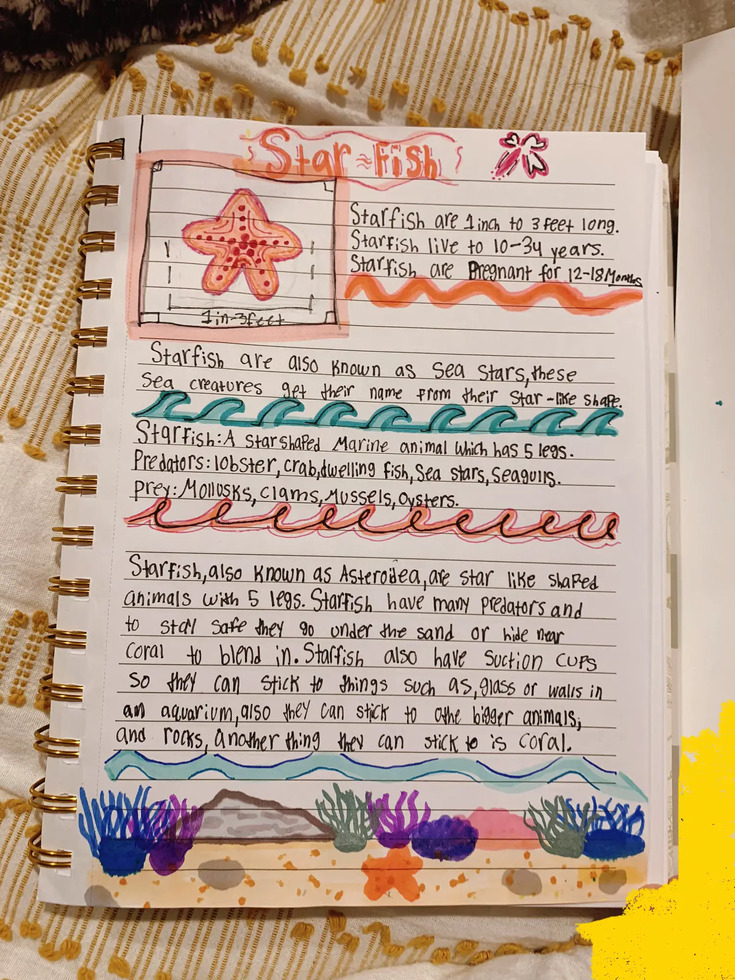 Star Fish
Starfish are 1inch to 3 feet long.
Starfish live to 10-34 years.
Starfish are Pregnant for 12-18 Months
1in-3feet
Starfish are also known as Sea Stars, these
Sea creatures get their name from their Star-like shape.
Starfish: A star shaped Marine animal which has 5 legs.
Predators: lobster, crab, dwelling fish, Sea stars, Seagulls.
Prey: Mollusks, Clams, Mussels, Oysters.
Starfish, also known as Asteroidea, are star like shaped
animals with 5 legs. Starfish have many predators and
to stay safe they go under the sand or hide near
coral to blend in. Starfish also have suction cups
so they can stick to things such as, glass or walls in
an aquarium, also they can stick to othe bigger animals,
and rocks, another thing they can stick to is coral.